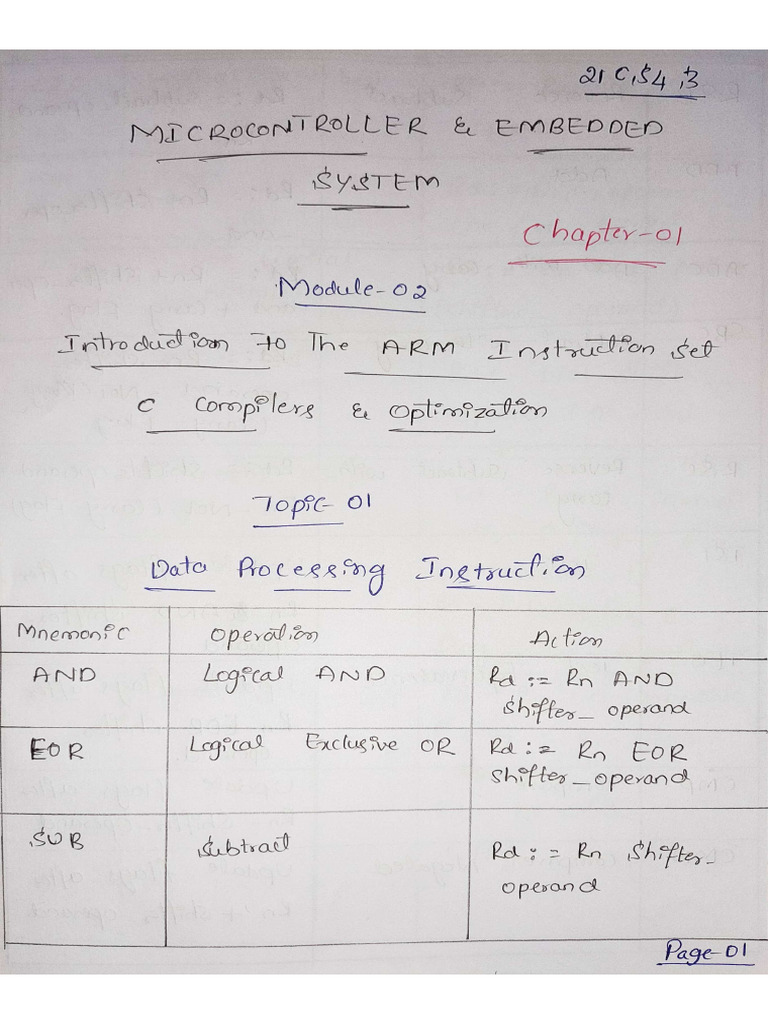 21CS43
MICROCONTROLLER & EMBEDDED
SYSTEM
Chapter-01
Module-02
Introduction To The ARM Instruction Set
C Compilers & Optimization
Topic-01
Data Processing Instruction
Mnemonic Operation Action
AND Logical AND Rd := Rn AND
Shifter_operand
EOR Logical Exclusive OR Rd := Rn EOR
Shifter_operand
SUB Subtract Rd := Rn Shifter_
operand
Page-01